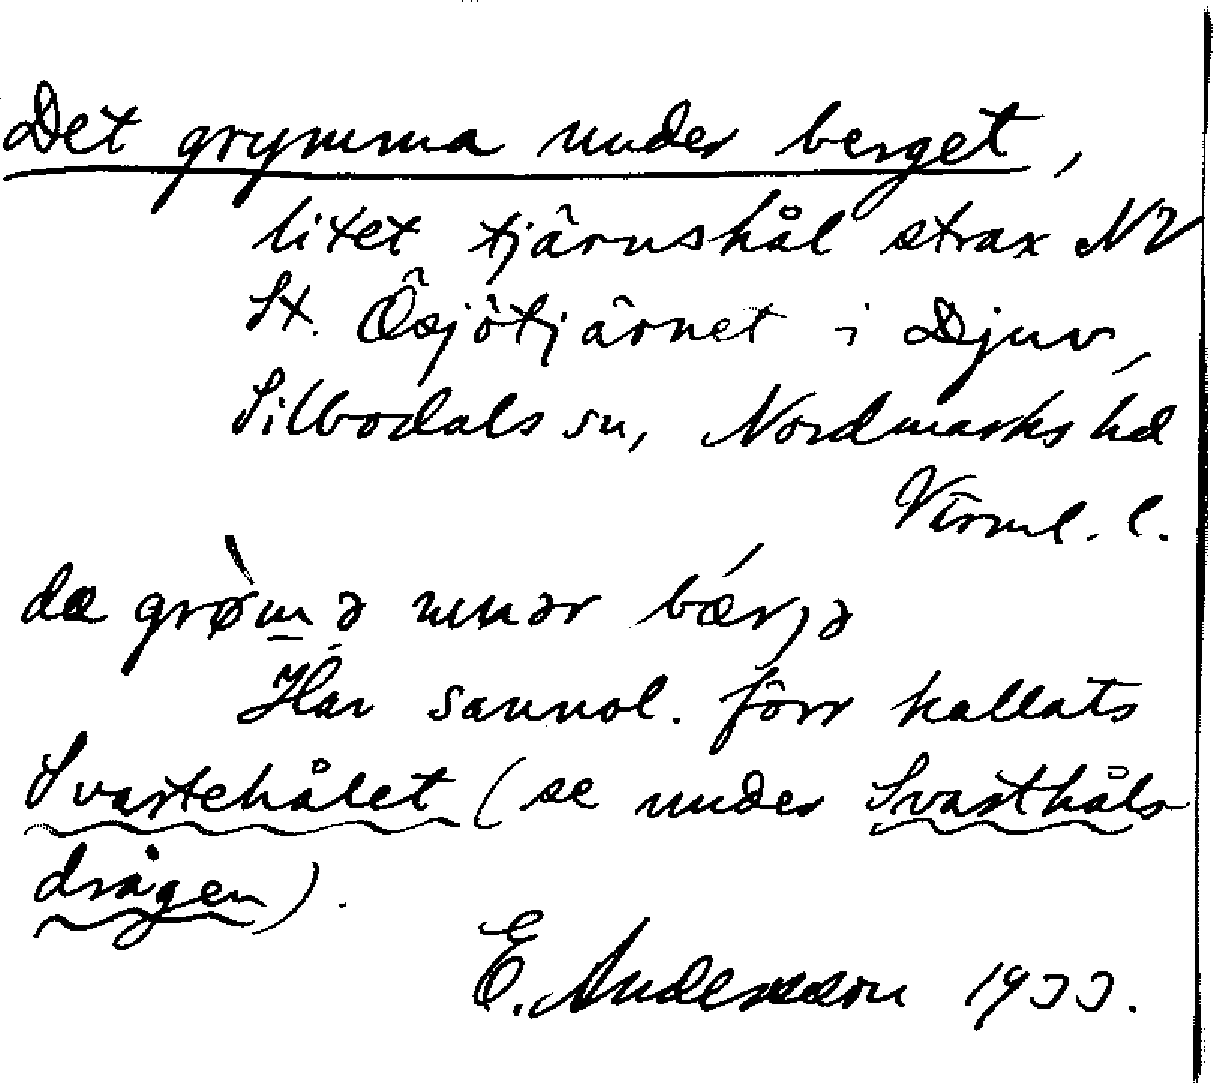 Det grymma under berget,
litet tjärnshål strax NV
St. Ösjötjärnet i Djuv,
Silbodals sn, Nordmarks hd
Värml. l.
dæ grø̀m̲ə unər bær,ə
Har sannol. förr kallats
Svartehålet (se under Svarthåls
drågen).
E. Andersson 1933.